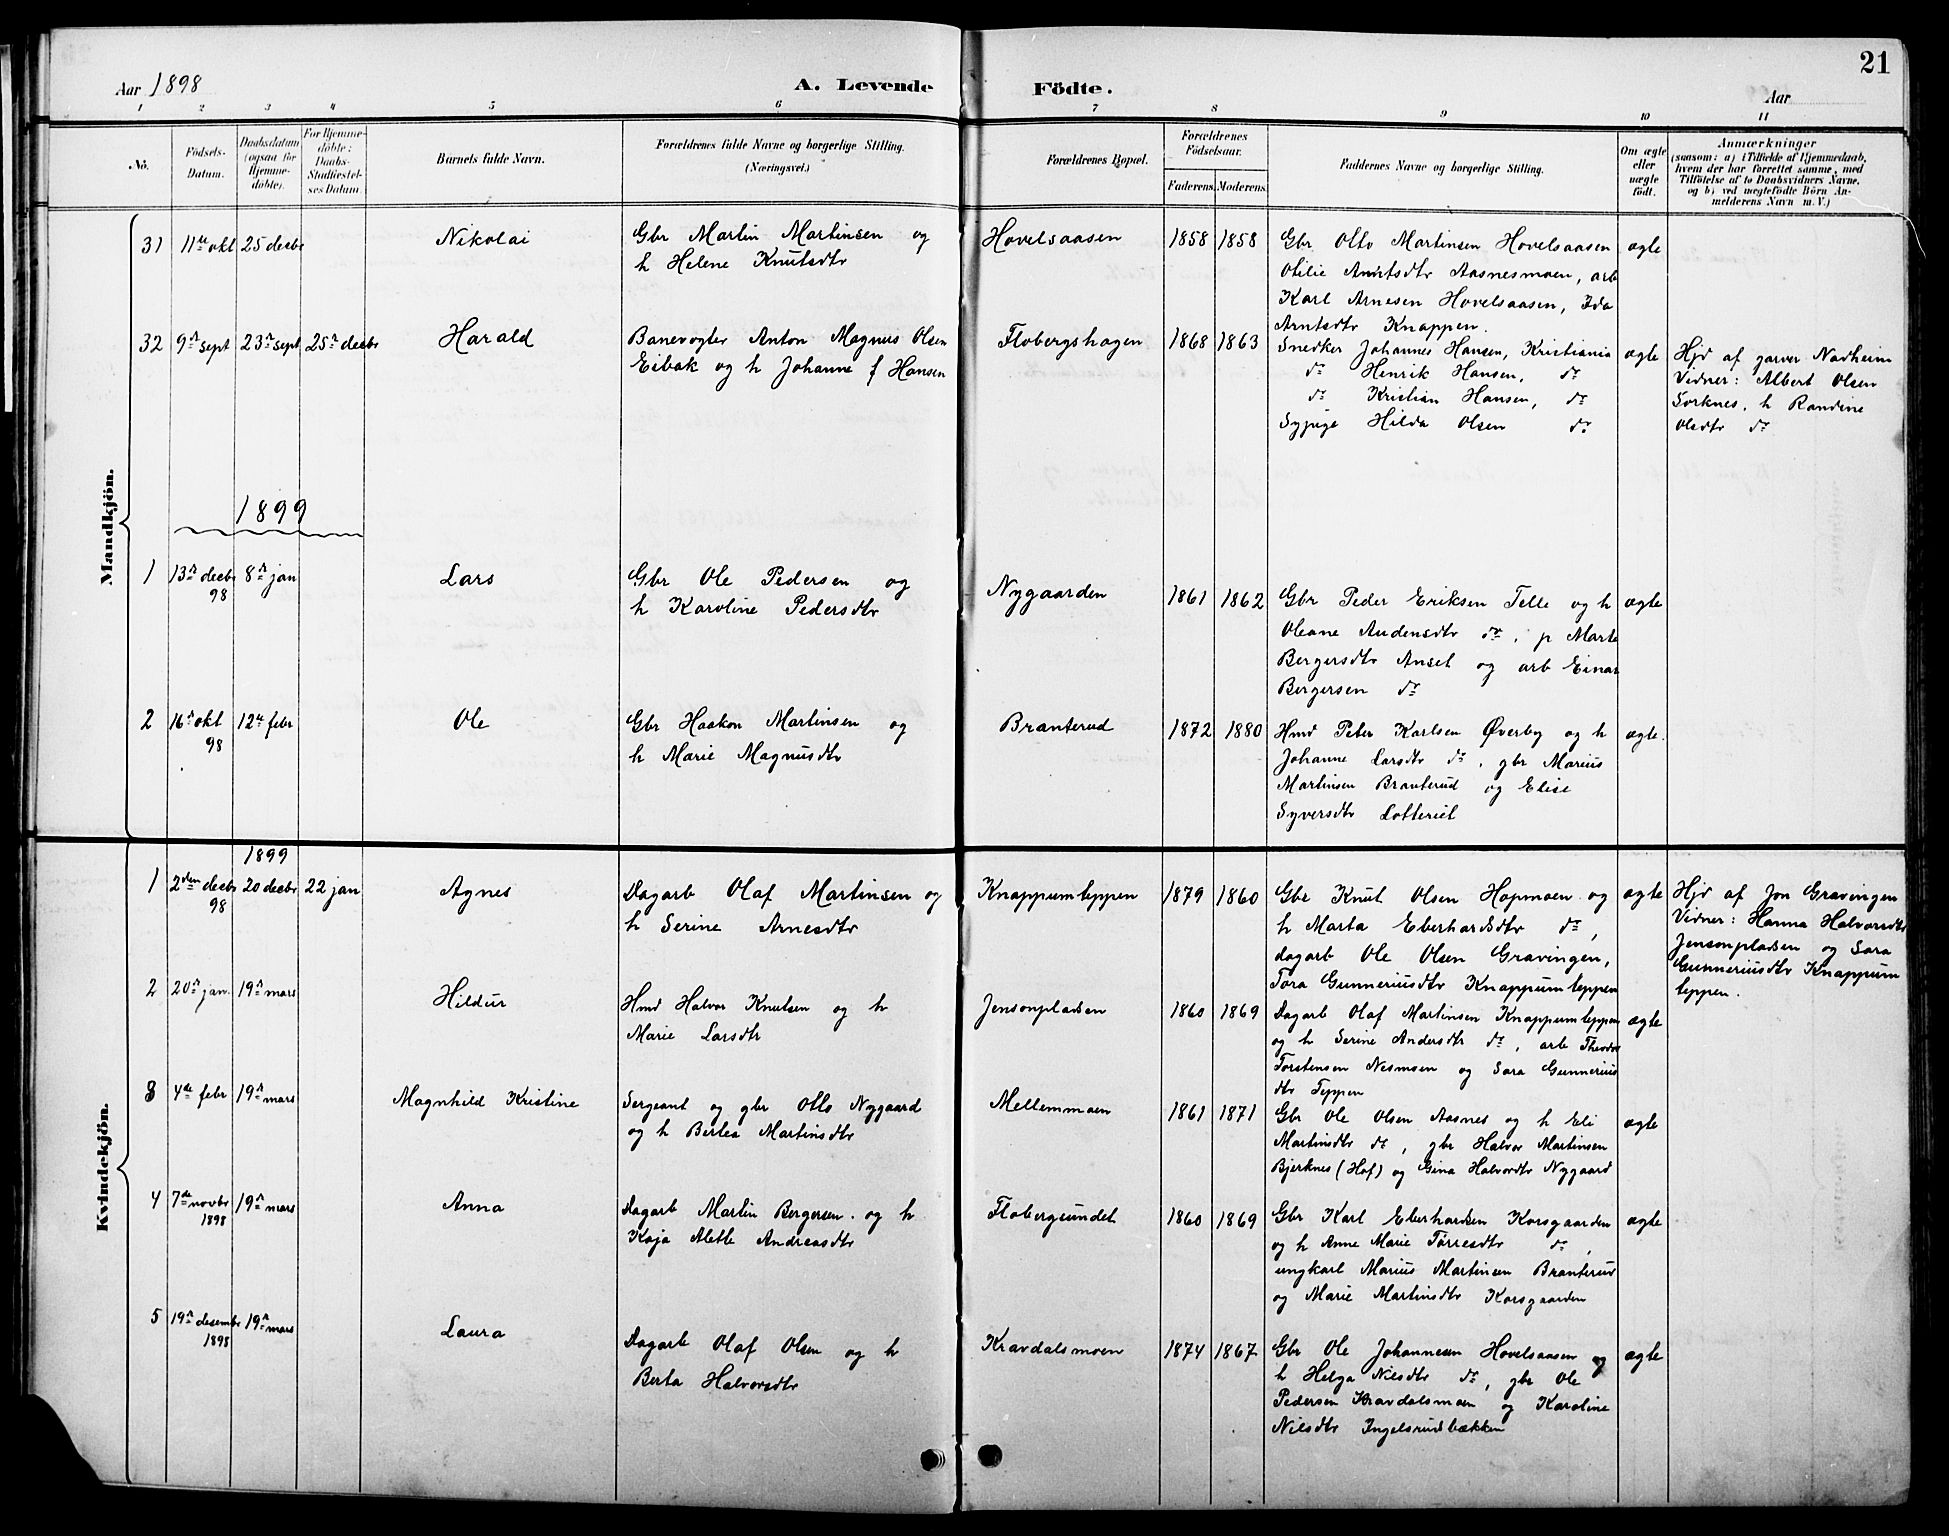 21
Aar 1898
A. Levende Födte.
Aar
1 2 3 4 5 6 7 8 9 10 11
No.
Födsels-
Datum.
Daabsdatum
(ogsaa for
Hjemme-
döbte).
For Hjemme-
döbte:
Daabs-
Stadfæstel-
ses Datum.
Barnets fulde Navn.
Forældrenes fulde Navne og borgerlige Stilling.
(Næringsvei.)
Forældrenes Bopæl.
Forældrenes
Födselsaar.
Faderens. Moderens.
Faddernes Navne og borgerlige Stilling.
Om ægte
eller
uægte
födt.
Anmærkninger
(saasom: a) i Tilfælde af Hjemmedaab,
hvem der har forrettet samme, med
Tilföielse af to Daabsvidners Navne,
og b) ved uægtefödte Börn An-
melderens Navn m. V.)
Mandkjön.
31 11te okt 25 decbr Nikolai
Gbr Martin Martinsen og
h Helene Knutsdtr
Hovelsaasen 1858 1858
Gbr Otto Martinsen Hovelsaasen
Otilie Arntsdtr Aasnesmoen, arb
Karl Arnesen Hovelsaasen, Ida
Arntsdtr Knappen.
ægte
32 9de sept 23de sept 25de decbr Harald
Banevogter Anton Magnus Olsen
Eibak og h Johanne f Hansen
Flobergshagen 1868 1863
Snedker Johannes Hansen, Kristiania
do Henrik Hansen, do
do Kristian Hansen, do
Sypige Hilda Olsen do
ægte
Hjd af garver Nordheim
Vidner: Albert Olsen
Sorknes, h Randine
Olsdtr do
1899
1 13de decbr 98 8de jan Lars
Gbr Ole Pedersen og
h Karoline Pedersdtr
Nygaarden 1861 1862
Gbr Peder Eriksen Telle og h
Oleane Audensdtr do, p Marte
Bergersdtr Anset og arb Einar
Bergersen do
ægte
2 16de okt 98 12te febr Ole
Gbr Haakon Martinsen og
h Marie Magnusdtr
Branterud 1872 1880
Hmd Peter Karlsen Øverby og h
Johanne Larsdtr do, gbr Marius
Martinsen Branterud og Elise
Syversdtr Lotteriet
ægte.
Kvindekjön.
1899
1 2den decbr 98 20 decbr 22 jan Agnes
Dagarb Olaf Martinsen og
h Serine Arnesdtr
Knappumteppen 1879 1860
Gbr Knut Olsen Hopmoen og
h Marta Eberhardsdtr do,
dagarb Ole Olsen Gravingen,
Tora Gunneriusdtr Knappumteppen
ægte
Hjd af Jon Gravingen
Vidner: Hanna Halvorsdtr
Jensonpladsen og Sara
Gunneriusdtr Knappum
teppen.
2 20de jan. 19de mars Hildur
Hmd Halvor Knutsen og h
Marie Larsdtr
Jensonpladsen 1860 1869
Dagarb Olaf Martinsen Knappumteppen
og h Serine Andersdtr do, arb Theodor
Torstensen Nesmoen og Sara Gunnerius
dtr Teppen
ægte
3 4de febr 19de mars Magnhild Kristine
Sergeant og gbr Otto Nygaard
og h Bertea Martinsdtr
Mellemmoen 1861 1871
Gbr Ole Olsen Aasnes og h Eli
Martinsdtr do, gbr Halvor Martinsen
Bjerknes (Hof) og Gina Halvordtr Nygaard
ægte
4 7de novbr 1898 19de mars Anna
Dagarb Martin Bergersen og h
Kaja Alette Andreasdtr
Flobergsundet 1860 1869
Gbr Karl Eberhardsen Korsgaarden
og h Anne Marie Torresdtr do,
ungkarl Marius Martinsen Branterud
og Marie Martinsdtr Korsgaarden
ægte
5 19de desembr 1898 19de mars Laura
Dagarb Olaf Olsen og h
Berta Halvorsdtr
Kravdalsmoen 1874 1867
Gbr Ole Johannesen Hovelsaasen og
h Helga Nilsdtr do, gbr Ole
Pedersen Kravdalsmoen og Karoline
Nilsdtr Ingelsrudbækken
ægte